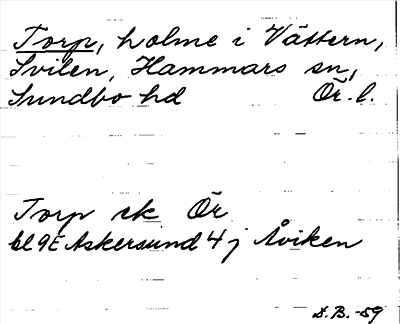 Torp, holme i Vättern,
Svilen, Hammars sn,
Sundbo hd Ör. l.
Torp sk Ör
bl 9E Askersund 4 j Åviken
S.B. -59